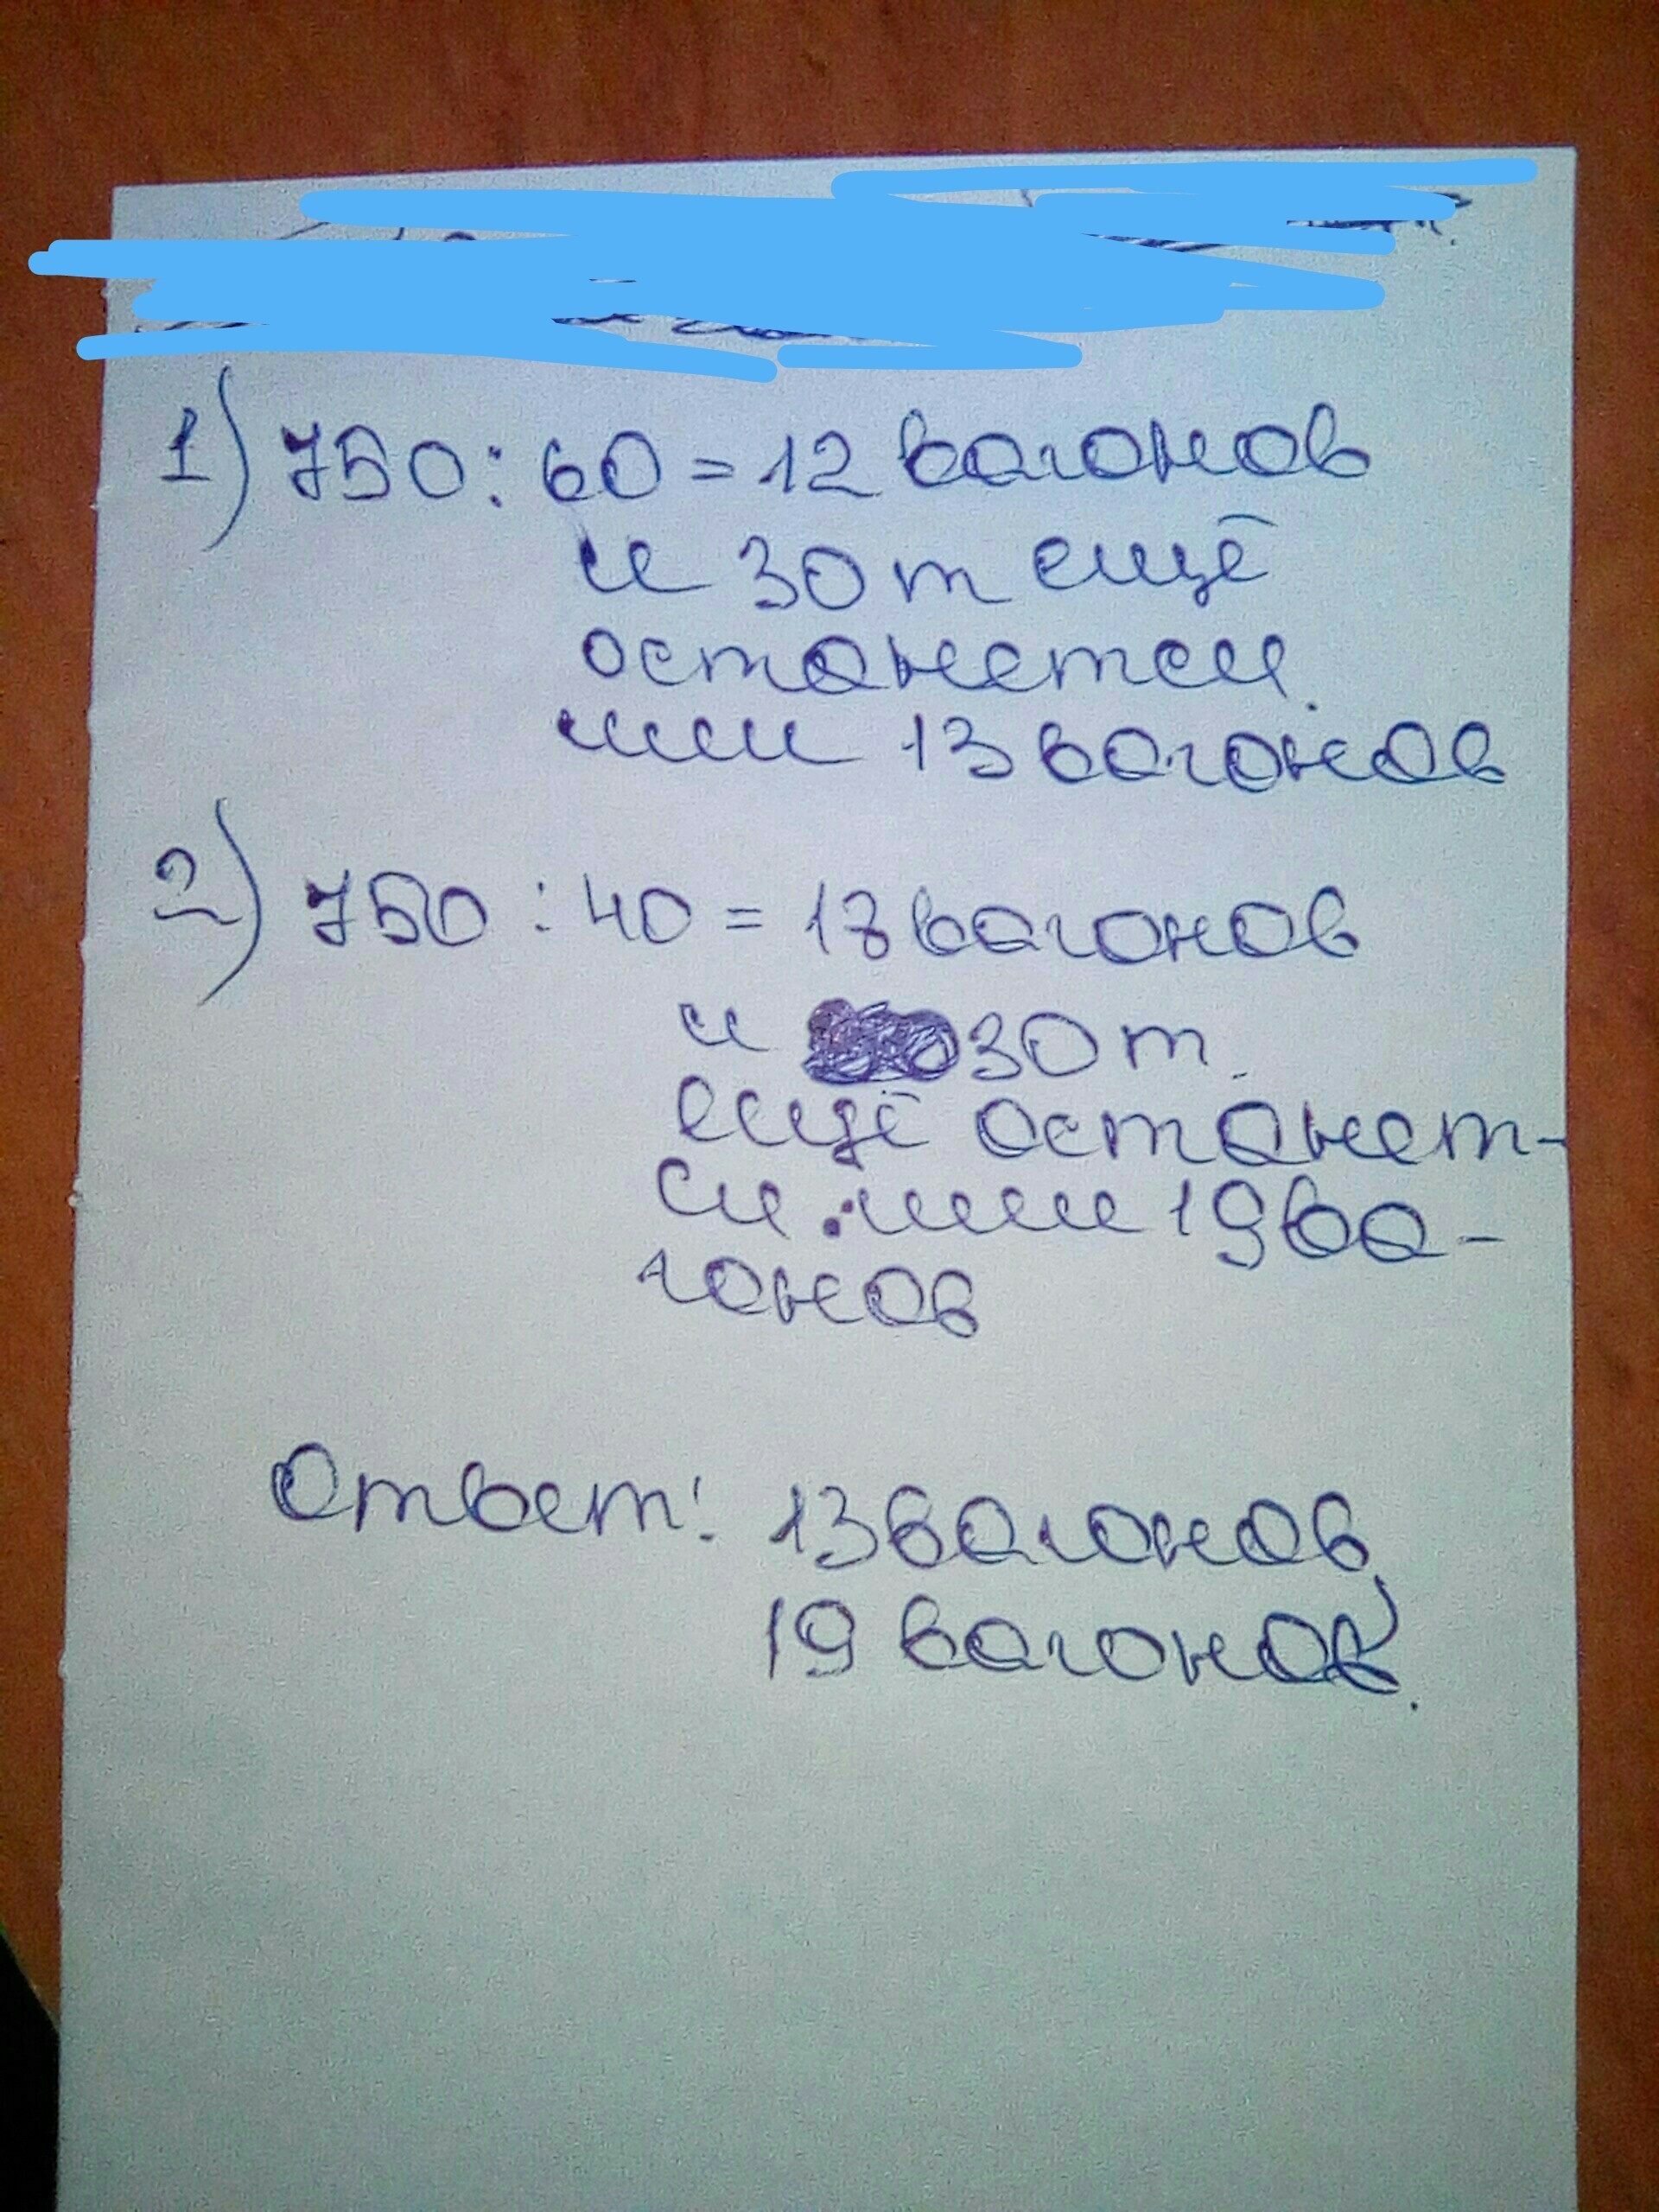 1) 750 : 60 = 12 вагонов
и 30 т ещё
останется
или 13 вагонов
2) 750 : 40 = 18 вагонов
и 30 т.
ещё останет-
ся. или 19 ва-
гонов
Ответ: 13 вагонов,
19 вагонов.